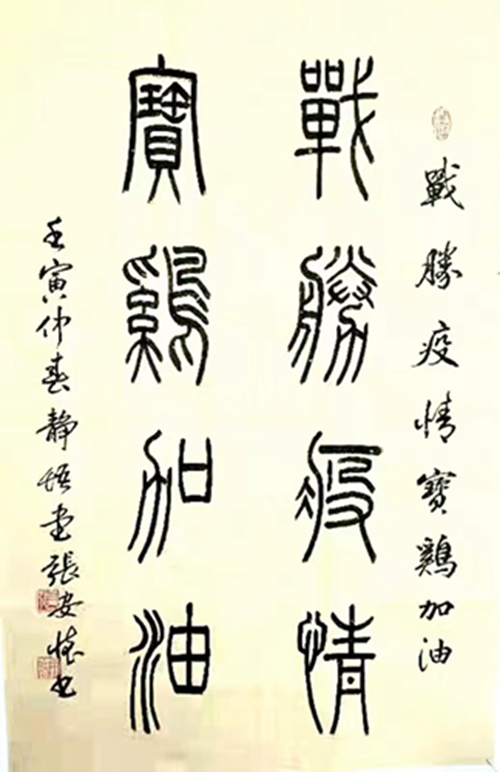 戰勝疫情寶鷄加油
戰勝疫情
寶鷄加油
壬寅仲春靜悟堂張安懷书